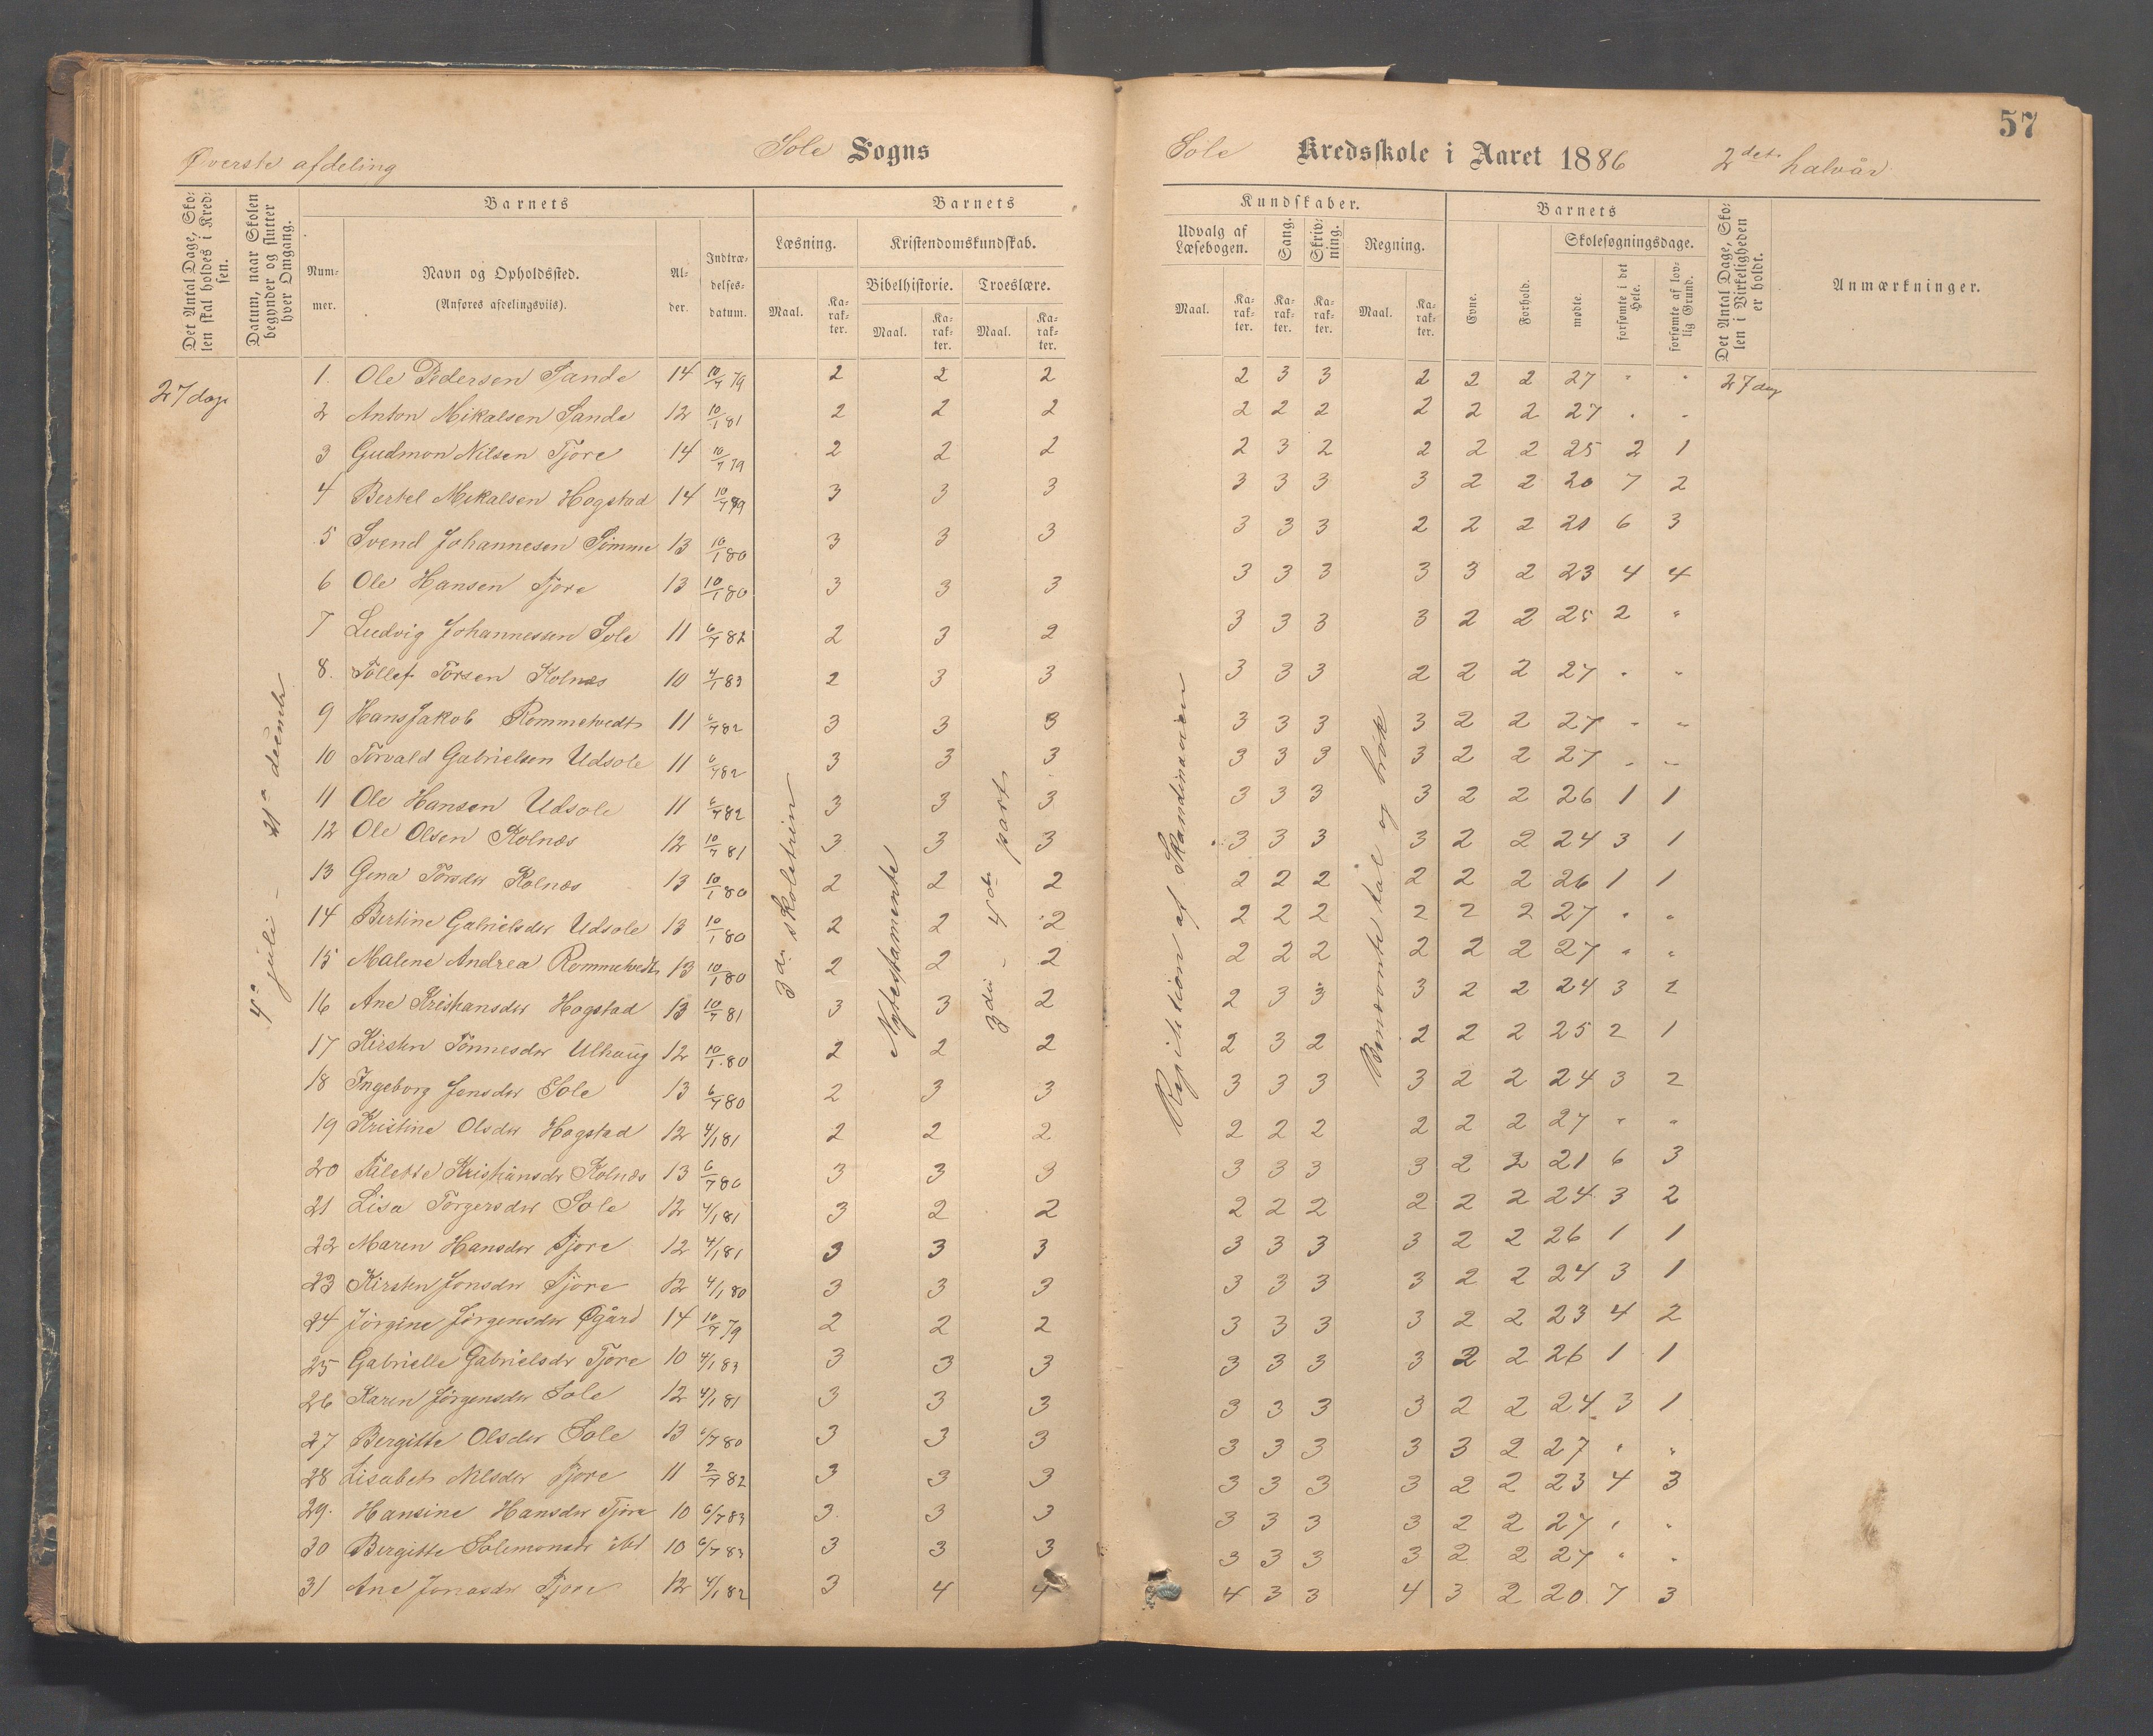 57
Øverste afdeling Sole Sogns Sole Kredsskole i Aaret 1886 2det halvår
Det Antal Dage, Skolen skal holdes i Kredsen.
Datum, naar Skolen begynder og slutter hver Omgang.
Barnets
Nummer.
Navn og Opholdssted.
(Anføres afdelingsviis).
Alder.
Indtrædelsesdatum.
Barnets
Læsning.
Maal.
Karakter.
Kristendomskundskab.
Bibelhistorie.
Maal.
Karakter.
Troeslære.
Maal.
Karakter.
Kundskaber.
Udvalg af Læsebogen.
Maal.
Karakter.
Sang.
Karakter.
Skrivning.
Karakter.
Regning.
Maal.
Karakter.
Barnets
Evne.
Forhold.
Skolesøgningsdage.
mødte.
forsømte i det Hele.
forsømte af lovlig Grund.
Det Antal Dage, Skolen i Virkeligheden er holdt.
Anmærkninger.
27 dage
4de juli – 21de decembr
3die skoletrin
Nytestamente
3die – 4de part
Repitition af Skandinavien
Benævnte tal og brøk
27 dag
1. Ole Pedersen Sande 14 10/7 79 2 2 2 2 3 3 2 2 2 27 " "
2 Anton Mikalsen Sande 12 10/1 81 2 2 2 2 2 2 2 2 2 27 " "
3 Gudmon Nilsen Tjore 14 10/7 79 2 2 2 2 3 2 2 2 2 25 2 1
4 Bertel Mikalsen Hogstad 14 10/7 79 3 3 3 3 3 3 3 2 2 20 7 2
5 Svend Johannesen Sømme 13 10/1 80 3 3 3 3 3 3 2 2 2 21 6 3
6 Ole Hansen Tjore 13 10/1 80 3 3 3 3 3 3 3 3 2 23 4 4
7 Ludvig Johannessen Sole 11 6/7 82 2 3 2 3 3 3 3 2 2 25 2 "
8. Tollef Torsen Kolnæs 10 4/1 83 2 3 3 3 3 3 2 2 2 27 " "
9 Hans Jakob Rommetvedt 11 6/7 82 3 3 3 3 3 3 3 2 2 27 " "
10 Torvald Gabrielsen Udsole 11 6/7 82 3 3 3 3 3 3 3 2 2 27 " "
11 Ole Hansen Udsole 11 6/7 82 3 3 3 3 3 3 3 2 2 26 1 1
12 Ole Olsen Kolnæs 12 10/7 81 3 3 3 3 3 3 3 2 2 24 3 1
13 Gina Torsdr Kolnæs 13 10/1 80 2 2 2 2 2 2 2 2 2 26 1 1
14 Bertine Gabrielsdr Udsole 13 10/1 80 2 2 2 2 2 2 2 2 2 27 " "
15 Malene Andrea Rommetvedt 13 10/1 80 2 2 2 2 2 2 2 2 2 27 " "
16 Ane Kristiansdr Hogstad 13 10/7 81 3 3 2 2 3 3 3 2 2 24 3 2
17 Kirsten Tønnesdr Ulhaug 12 10/1 80 2 2 2 2 3 2 2 2 2 25 2 1
18 Ingeborg Jonsdr Sole 13 6/7 80 2 3 3 3 3 3 3 2 2 24 3 2
19 Kristine Olsdr Hogstad 12 4/1 81 2 2 2 2 2 2 2 2 2 27 " "
20 Talette Kristiansdr Kolnæs 13 6/7 80 3 3 3 3 3 3 3 2 2 21 6 3
21 Lisa Torgersdr Sole 12 4/1 81 3 2 2 2 2 2 2 2 2 24 3 2
22 Maren Hansdr Tjore 12 4/1 81 3 3 3 3 3 3 3 2 2 26 1 1
23 Kirsten Jonsdr Tjore 12 4/1 80 3 3 3 3 3 3 3 2 2 24 3 1
24 Jørgine Jørgensdr Øgård 14 10/7 79 2 2 2 3 3 3 3 2 2 23 4 2
25 Gabrielle Gabrielsdr Tjore 10 4/1 83 3 3 3 3 3 3 3 2 2 26 1 1
26 Karen Jørgensdr Sole 12 4/1 81 3 3 3 3 3 3 3 2 2 24 3 1
27 Bergitte Olsdr Sole 13 6/7 80 3 3 3 3 3 3 3 3 2 27 " "
28 Lisabet Nilsdr Tjore 11 2/7 82 3 3 3 3 3 3 3 2 2 23 4 3
29. Hansine Hansdr Tjore 10 6/7 83 3 3 3 3 3 3 3 2 2 27 " "
30 Bergitte Solemonsdr ibd 10 6/7 83 3 3 3 3 3 3 3 2 2 27 " "
31 Ane Jonasdr Tjore 12 4/1 82 3 4 4 4 3 3 4 3 2 20 7 3